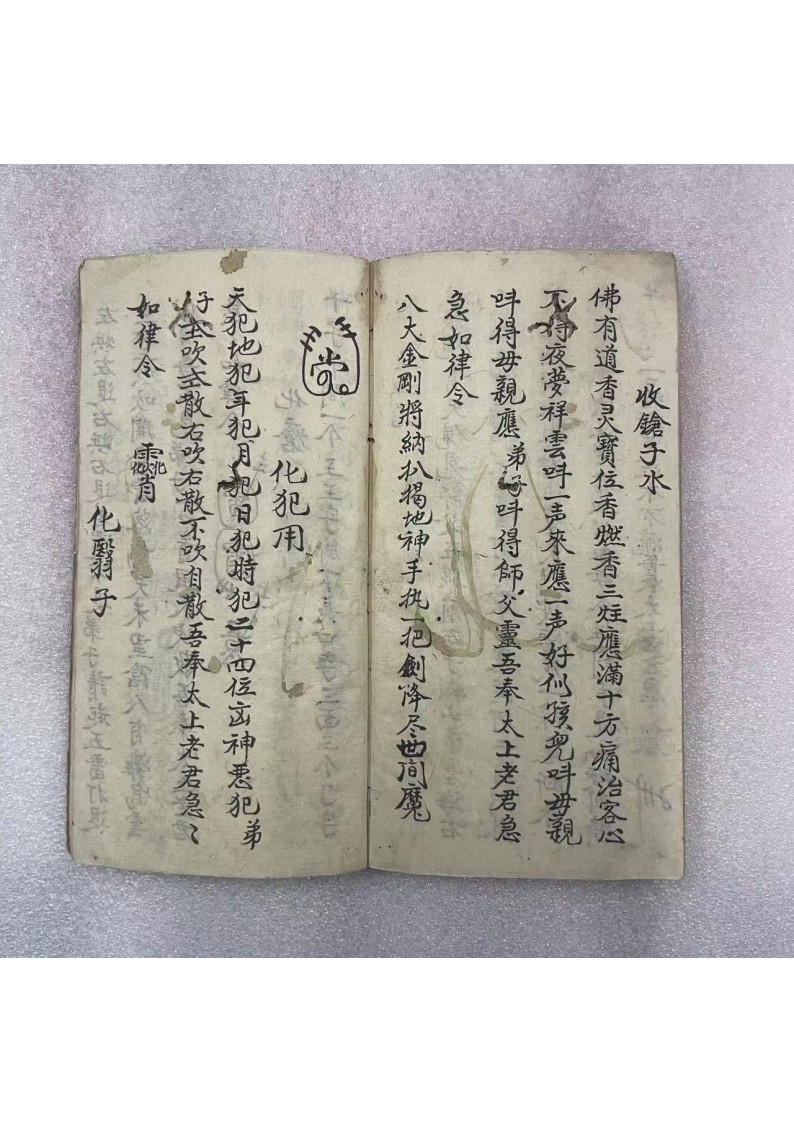 收鎗子水
佛有道香灵寶位香燃香三炷應滿十方痛治客心
不得夜夢祥雲呌一声來應一声好似孩兒呌母親
呌得母親應弟子呌得師父靈吾奉太上老君急
急如律令
八大金剛將納扒揭地神手执一把劍降尽世间魔
化犯用
天犯地犯年犯月犯日犯時犯二十四位凶神悪犯弟
子左吹左散右吹右散不吹自散吾奉太上老君急〻
如律令
化翳子